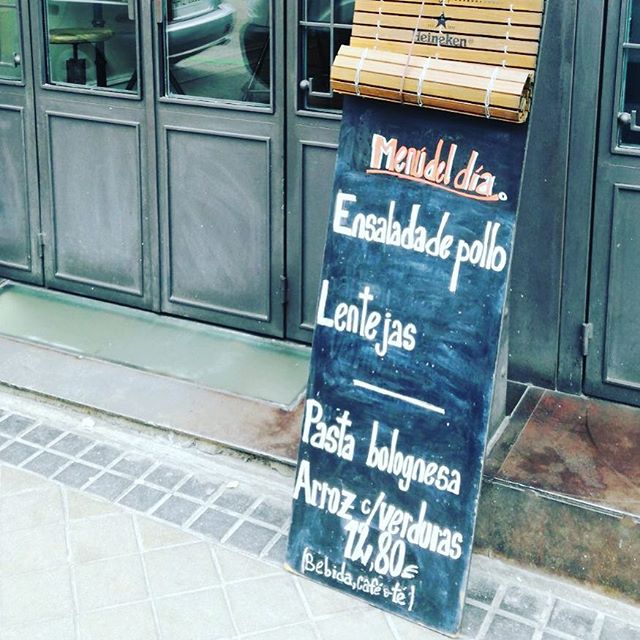 Heineken
Menú del día.
Ensalada de pollo
Lentejas
Pasta bolognesa
Arroz c/verduras
12,80€
(Bebida, café o té)